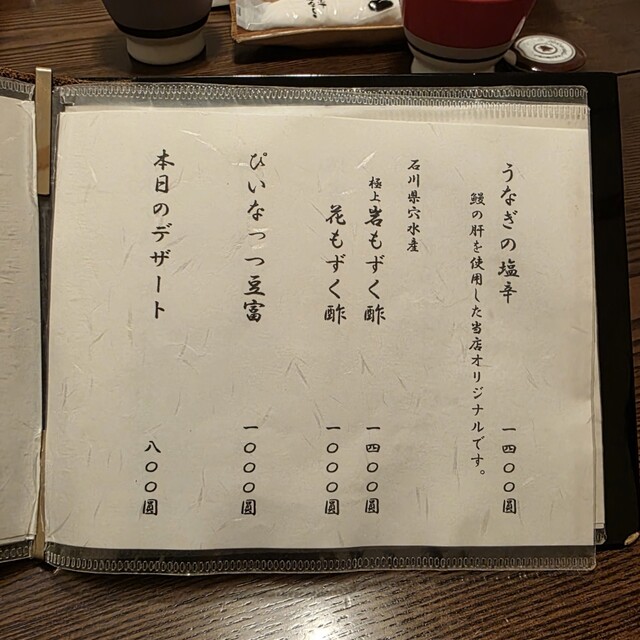 うなぎの塩辛 一四〇〇圓
鰻の肝を使用した当店オリジナルです。
石川県穴水産
極上 岩もずく酢 一四〇〇圓
花もずく酢 一〇〇〇圓
ぴぃなっつ豆富 一〇〇〇圓
本日のデザート 八〇〇圓